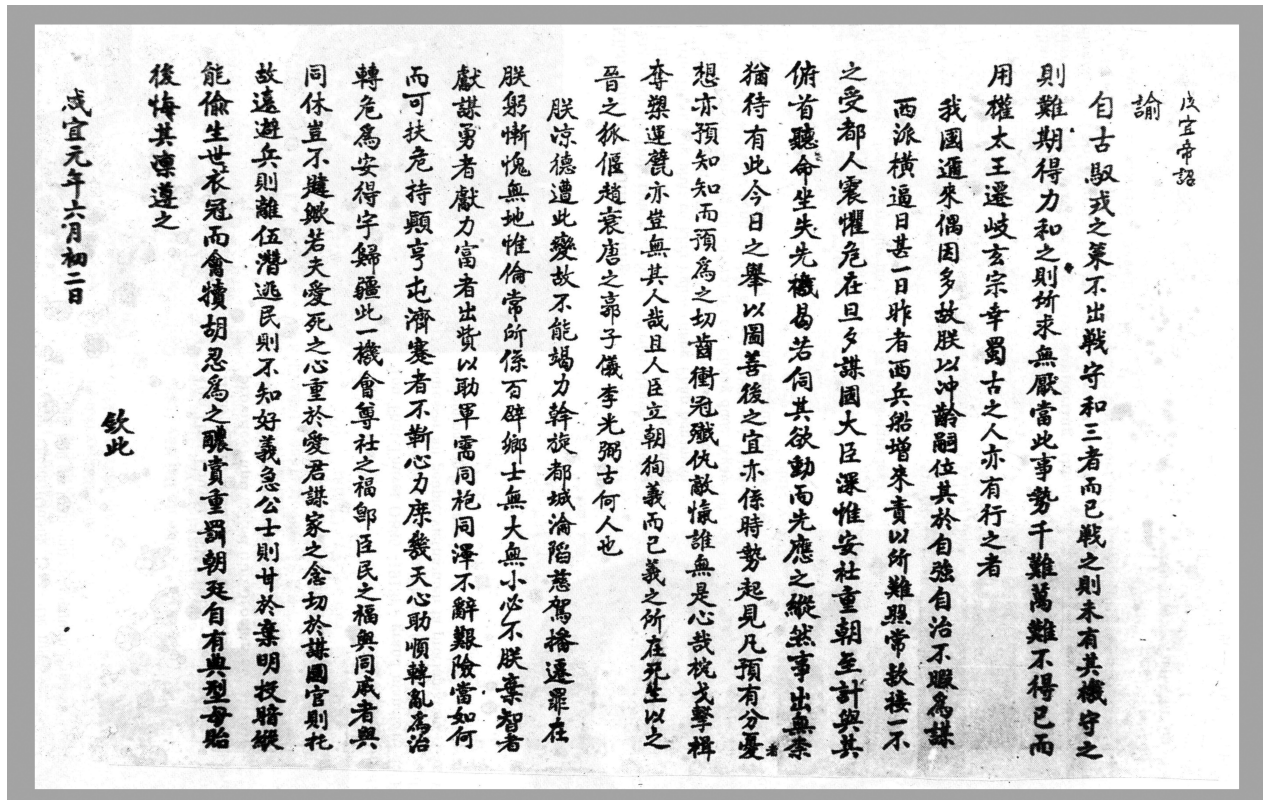 咸宜帝詔
諭
自古馭戎之策不出戦守和三者而已戦之則未有其機守之
則難期得力和之則所求無厭當此事勢千難萬難不得已而
用權太王遷岐玄宗幸蜀古之人亦有行之者
我國邇來偶因多故朕以冲齡嗣位其於自強自治不暇爲謀
西派橫逼日甚一日昨者西兵船增來責以所難照常款接一不
之受都人震懼危在旦夕謀國大臣深惟安社重朝至計與其
俯首聽命坐失先機曷若伺其欲動而先應之縱然事出無柰
猶待有此今日之舉以圖善後之宜亦係時勢起見凡預有分憂者
想亦預知知而預爲之切齒衝冠殲仇敵愾誰無是心哉枕戈擊楫
奪槊運甓亦豈無其人哉且人臣立朝狥義而已義之所在死生以之
晉之狐偃趙衰唐之郭子儀李光弼古何人也
朕凉德遭此變故不能竭力斡旋都城淪陷慈駕播遷罪在
朕躬慚愧無地惟倫常所係百辟鄉士無大無小必不朕棄智者
獻謀勇者獻力富者出貲以助軍需同袍同澤不辭艱險當如何
而可扶危持顛亨屯濟蹇者不靳心力庶幾天心助順轉亂爲治
轉危爲安得字歸疆此一機會尃社之福卽臣民之福與同戚者與
同休豈不韙歟若夫愛死之心重於愛君謀家之念切於謀國官則托
故遠避兵則離伍潛逃民則不知好義急公士則甘於棄明投暗縱
能偷生世衣冠而會犢胡忍爲之醲賞重罰朝廷自有典型毋貽
後悔其凛遵之
欽此
咸宜元年六月初二日